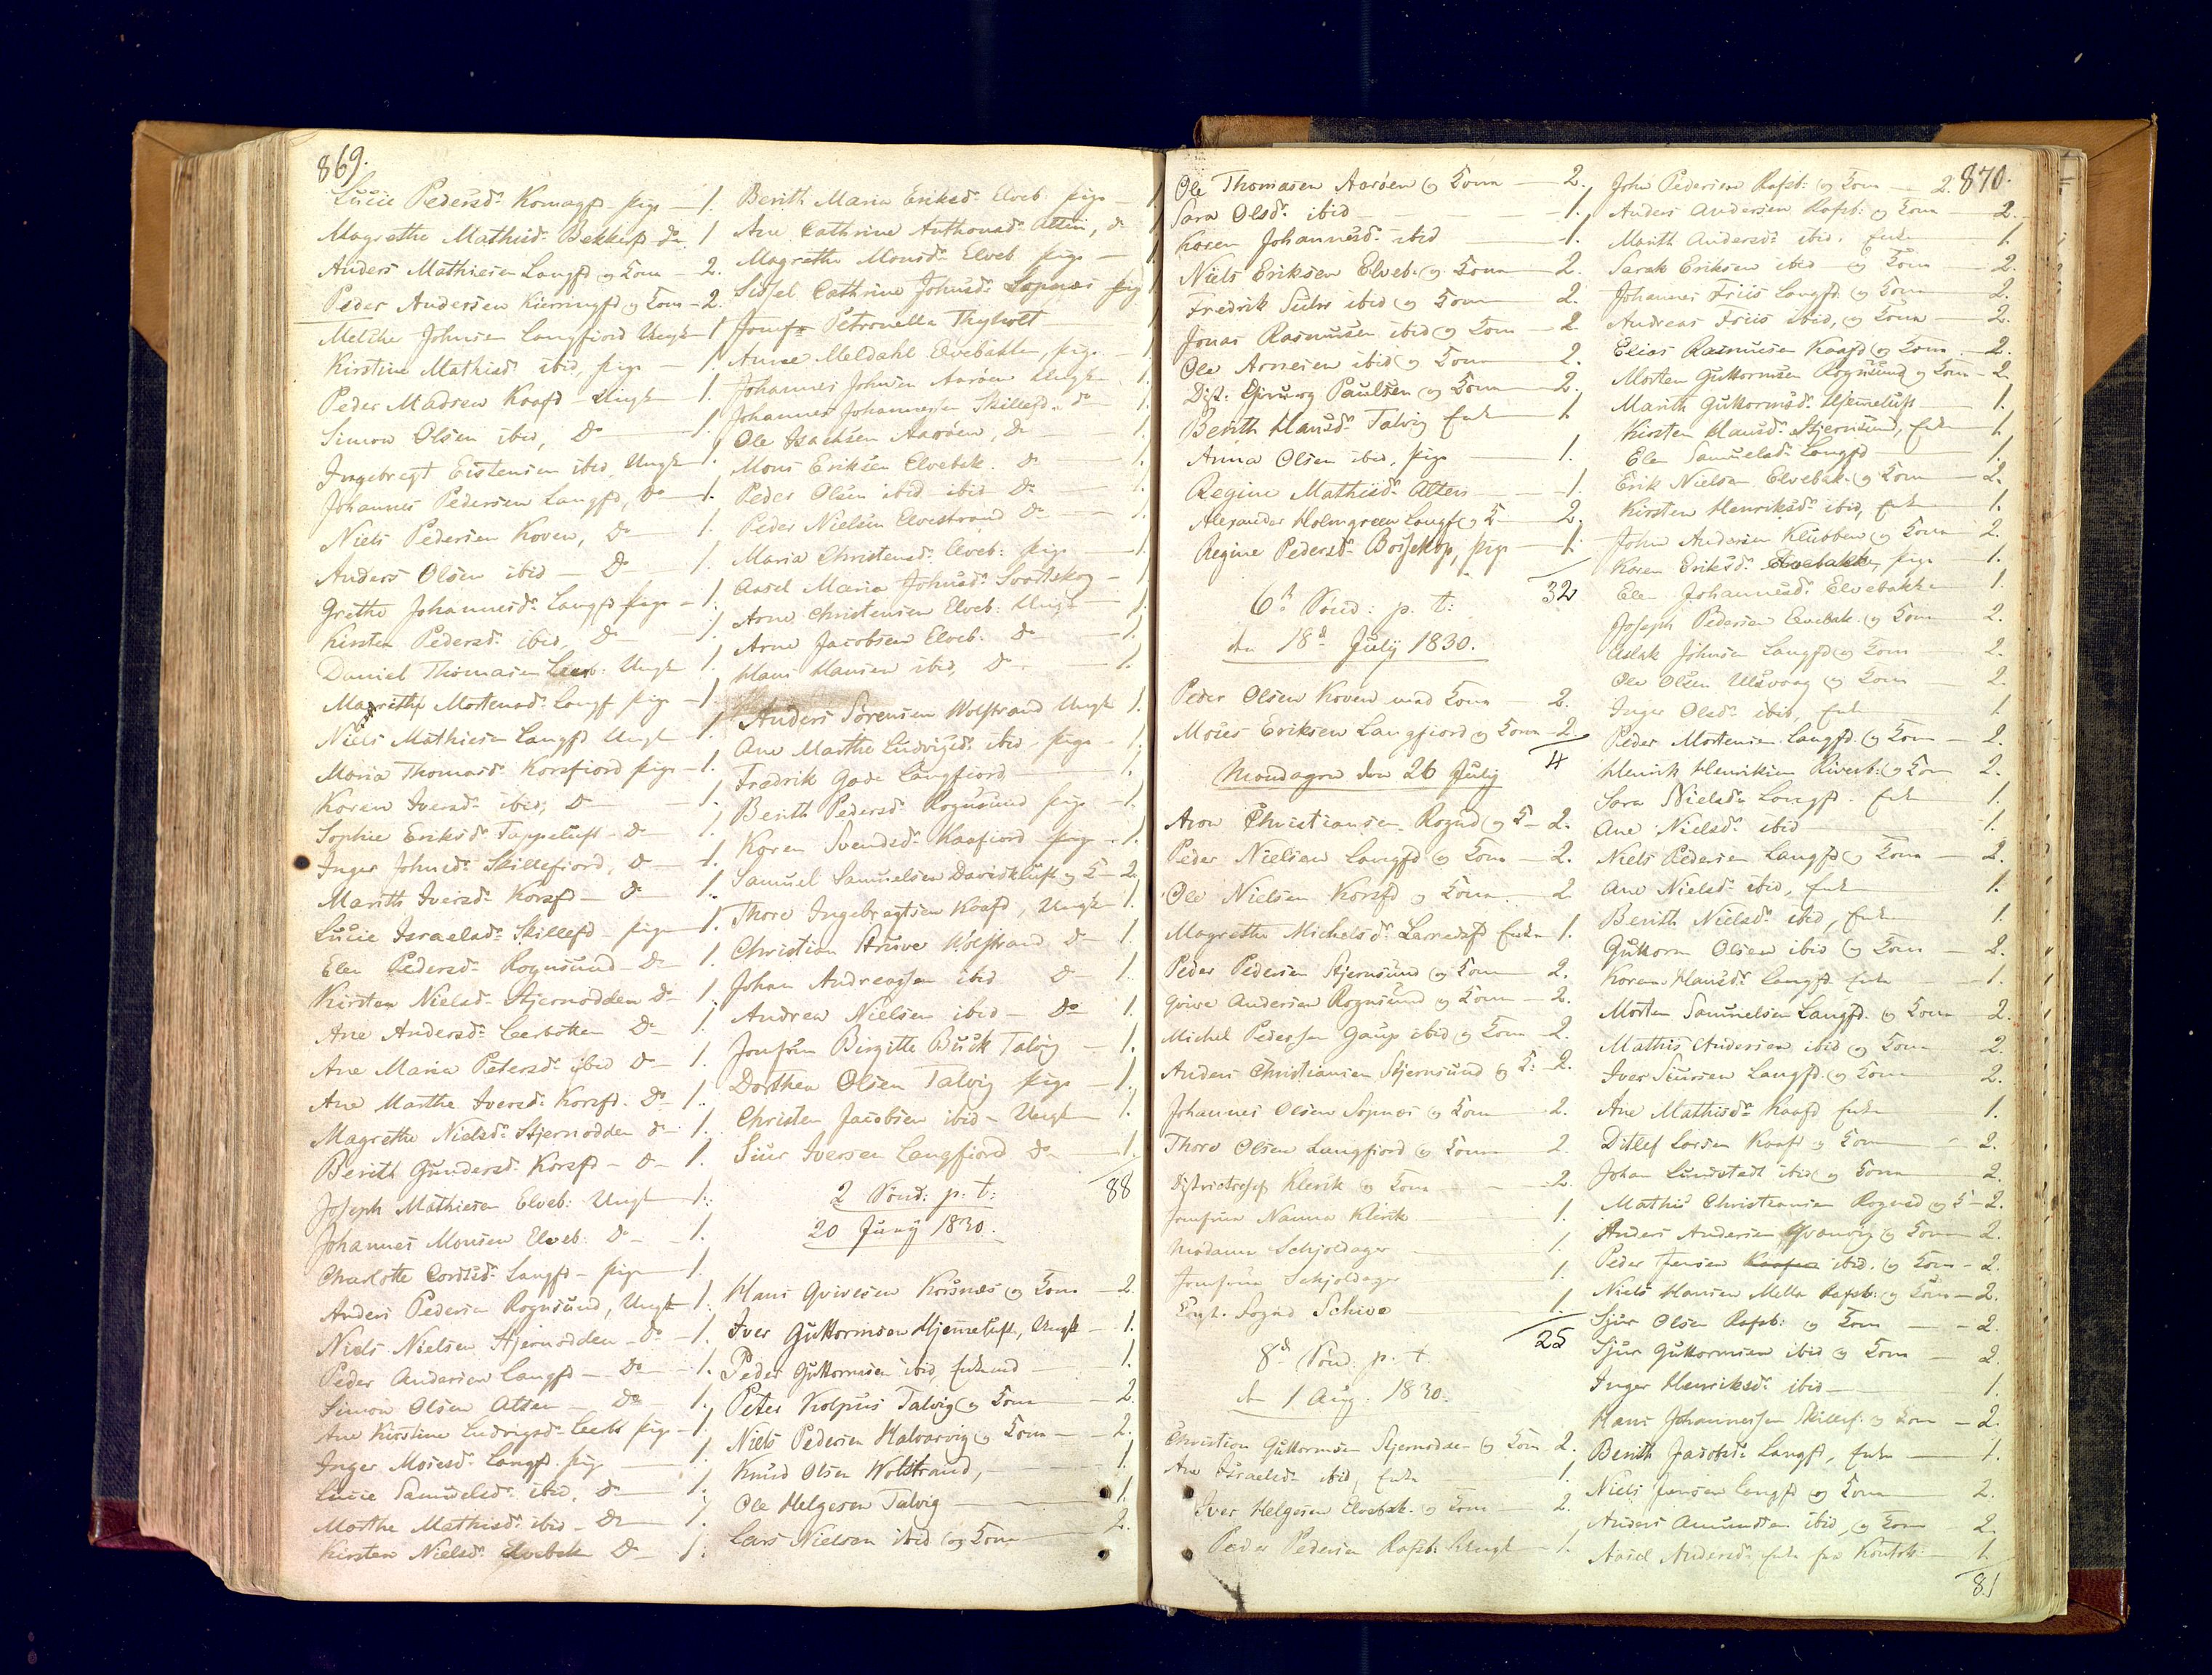 869.
Lucie Pedersd. Komagf. pige — 1.
Magrethe Mathisd. Bekkerf. do 1
Anders Mathiesen Langfd og Kone — 2.
Peder Andersen Kierringfd og Kone — 2.
Johnsen Langfiord Ungk 1
Kirstine Mathiasd. ibid, pige — 1.
Peder Madsen Kaafd — Ungk — 1.
Simon Olsen ibid, Do — 1.
Ingebregt Eistensen ibid Ungk 1.
Johannes Pedersen Langfd, Do — 1.
Niels Pedersen Koven, Do — 1.
Anders Olsen ibid — Do — 1.
Grethe Johannesd. Langfd pige — 1.
Kirsten Pedersd. ibid, Do — 1
Daniel Thomasen Leerb: Ungk 1.
Mortensd. Langf. pige — 1.
Niels Mathiesen Langfd Ungk — 1.
Maria Thomasd. Korsfiord pige — 1.
Karen Iversd. ibid, Do — 1.
Sophie Eriksd. Tappeluft — Do — 1.
Inger Johnsd. Skillefiord, Do — 1.
Marith Iversd. Korsfd — Do — 1.
Lucie Israelsd. Skillefd — pige — 1.
Elen Pedersd. Rognsund — Do — 1.
Kirsten Nielsd. Stjernodden Do — 1.
Ane Andersd. Leerbotten Do — 1.
Ane Maria Petersd. ibid Do — 1.
Ane Marthe Iversd. Korsfd. Do — 1.
Magrethe Nielsd. Stjernodden do — 1.
Berith Gundersd. Korsfd — Do — 1.
Joseph Mathiesen Elveb: Ungk — 1.
Johannes Monsen Elveb. Do — 1.
Charlotte Langfd — pige — 1.
Anders Pedersen Rognsund, Ungk 1.
Niels Nielsen Stjernodden — Do — 1.
Peder Andersen Langfd — Do — 1.
Simon Olsen Alten — Do — 1.
Ane Kirstine Ludvigsd. Leerb pige — 1
Inger Moiesd. Langf. pige — 1
Lucie Samuelsd. ibid, do — 1.
Marthe Mathisd. ibid — Do — 1.
Kirsten Nielsd. Elvebak Do — 1.
Berith Maria Eriksd. Elveb. pige — 1
Ane Cathrine Anthonsd. Alten, do 1
Magrethe Monsd. Elveb. pige — 1
Sidsel Cathrine Johnsd. Sopnæs pig 1
Jomfr Petronella Thyholt 1
Anne Meldahl Elvebakken, pige — 1.
Johannes Johnsen Aarøen Ungk 1.
Johannes Johannesen Skillefd. do 1.
Ole Isachsen Aarøen, Do — 1.
Mons Eriksen Elvebak. Do — 1.
Peder Olsen ibid ibid Do — 1.
Peder Nielsen Elvestrand Do — 1.
Maria Christensd. Elveb: pige — 1.
Aasel Maria Johnsd. Svartskog — 1.
Arne Christensen Elveb. Ungk — 1.
Arne Jacobsen Elveb. Do — 1.
Hans Hansen ibid, Do — 1.
Anders Sørensen Wolstrand Ungk 1.
Ane Marthe Ludvigsd. ibid — pige — 1.
Fredrik Gade Langfiord — 1.
Berith Pedersd. Rognsund pige — 1.
Karen Svendsd. Kaafiord pige — 1.
Samuel Samuelsen Davidkluft og K — 2.
Thore Ingebregtsen Kaafd, Ungk 1.
Christian Struve Wolstrand Do — 1.
Johan Andreasen ibid Do — 1.
Andrea Nielsen ibid — Do 1.
Jomfrue Birgitte Buck Talvig — 1.
Dorthea Olsen Talvig pige — 1.
Christen Jacobsen ibid — Ungk 1.
Siur Iversen Langfiord Do — 1.
88
2 Sønd: p. t:
20 Juny 1830.
Hans Korsnæs og Kone — 2.
Iver Guttormsen Hjemeluft, Ungk — 1.
Peder Guttormsen ibid, Enkemd — 1.
Peter Kolpus Talvig og Kone — 2.
Niels Pedersen Halvarvig og Kone — 2.
Knud Olsen Wolstrand, — 1.
Ole Helgesen Talvig — 1.
Lars Nielsen ibid og Kone 2.
870.
Ole Thomasen Aarøen og Kone — 2.
Sara Olsd. ibid — 1.
Karen Johannesd. ibid — 1.
Niels Eriksen Elveb. og Kone — 2.
Fredrik Suhr ibid og Kone — 2.
Jonas Rasmusen ibid og Kone — 2
Ole Arnesen ibid og Kone — 2.
Dist. Paulsen og Kone — 2.
Berith Hansd. Talvig Enke 1.
Anna Olsen ibid, pige — 1.
Regine Mathisd. Alten — 1.
Alexander Holmgreen Langf og K — 2.
Regine Pedersd. Bossekop, pige — 1.
32
6te Sønd: p. t:
den 18de July 1830.
Peder Olsen Koven med Kone — 2.
Moses Eriksen Langfiord og Kone — 2.
4
Mandagen den 26 July
Aron Christiansen Rognd og K — 2.
Peder Nielsen Langfd og Kone — 2.
Ole Nielsen Korsfd og Kone. — 2
Magrethe Michelsd. Enke 1.
Peder Pedersen Stjernsund og Kone 2.
Andersen Rognsund og Kone — 2.
Michel Pedersen Gaup ibid og Kone — 2.
Anders Christiansen Stjernsund og K: 2.
Johannes Olsen Sopnæs og Kone — 2.
Thore Olsen Langfiord og Kone — 2.
Klerik og Kone — 2.
Jomfrue Nanna Klerik — 1.
Madame Schjoldager — 1.
Jomfrue Schjoldager — 1.
Schive — 1.
25
8de Sønd. p. t.
den 1 Aug. 1830.
Christian Guttormsen Stjernodden og Kone 2.
Ane Israelsd. ibid, Enke — 1.
Iver Helgesen Elvebak. og Kone — 2.
Peder Pedersen Rafsb. Ungk — 1.
John Pedersen Rafsb: og Kone — 2.
Anders Andersen Rafsb: og Kone 2.
Marith Andersd. ibid. Enke 1.
Sarak Eriksen ibid — og Kone — 2.
Johannes Friis Langfd. og Kone — 2.
Andreas Friis ibid, og Kone — 2.
Elias Rasmusen Kaafd og Kone — 2.
Morten Guttormsen Rognsund og Kone — 2.
Marith Guttormsd. Hjemeluft — 1.
Kirsten Hansd. Stjernsund, Enke 1.
Elen Samuelsd. Langfd — 1.
Erik Nielsen Elvebak. og Kone — 2.
Kirsten Henriksd. ibid, Enke 1.
John Andersen Klubben og Kone — 2.
Karen Eriksd. Elvebakke, pige 1.
Elen Johannesd. Elvebakken 1.
Joseph Pedersen Elvebak. og Kone — 2.
Aslak Johnsen Langfd og Kone — 2.
Ole Olsen Ulsvaag og Kone — 2.
Inger Olsd. ibid, Enke 1
Peder Mortensen Langfd. og Kone — 2.
Henrik Henriksen og Kone 2.
Sara Nielsd. Langfd. Enke 1.
Ane Nielsd. ibid — 1.
Niels Pedersen Langfd og Kone — 2.
Ane Nielsd. ibid, Enke 1.
Berith Nielsd. ibid, Enke 1.
Guttorm Olsen ibid og Kone — 2.
Karen Hansd. Langfd Enke — 1.
Morten Samuelsen Langfd. og Kone — 2.
Mathis Andersen ibid og Kone 2.
Iver Siursen Langfd. og Kone 2.
Ane Mathisd. Kaafd Enke 1.
Ditlef Larsen Kaafd og Kone — 2.
Johan Lundstadt ibid og Kone 2.
Mathis Christiansen Rognsd og K — 2.
Anders Andersen og Kone 2.
Peder Jensen ibid. og Kone — 2.
Niels Hansen Mella Rafsb: og Kone — 2.
Sjur Olsen Rafsb: og Kone — 2.
Sjur Guttormsen ibid og Kone — 2.
Inger Henriksd. ibid — 1.
Hans Johannesen Skillef. og Kone — 2.
Berith Jacobsd. Langfd, Enke — 1.
Niels Jensen Langfd og Kone 2.
Anders Amundsen ibid, og Kone — 2.
Aasel Andersd. Enke fra Koutok: — 1.
81